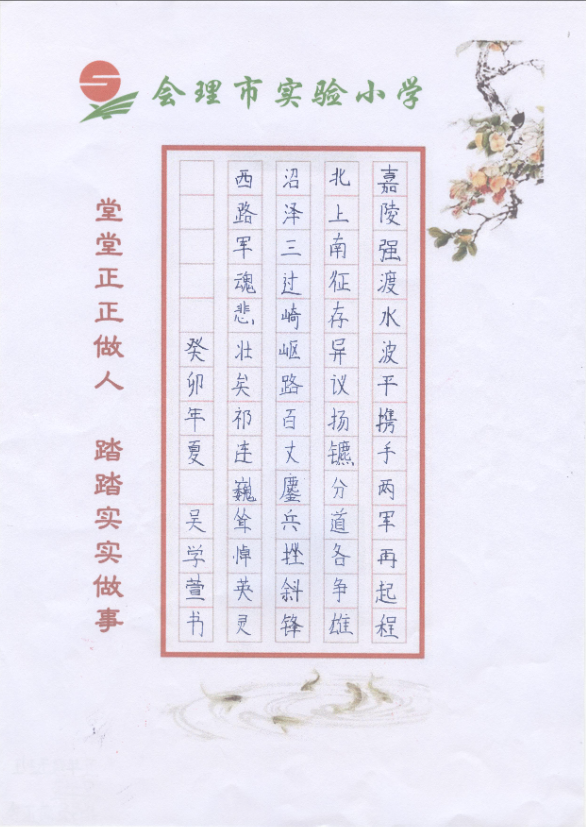 会理市实验小学
嘉陵强渡水波平携手两军再起程
北上南征存异议扬镳分道各争雄
沼泽三过崎岖路百丈鏖兵挫斜锋
西路军魂悲壮矣祁连巍耸悼英灵
癸卯年夏 吴学萱书
堂堂正正做人 踏踏实实做事